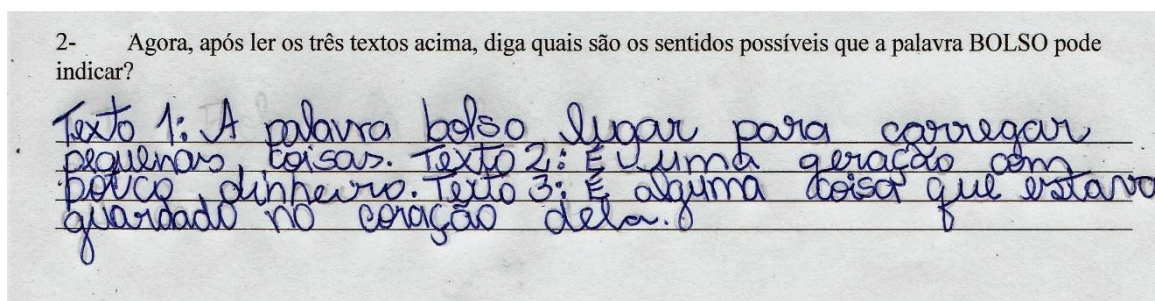 2- Agora, após ler os três textos acima, diga quais são os sentidos possíveis que a palavra BOLSO pode
indicar?
Texto 1: A palavra bolso lugar para carregar
pequenas coisas. Texto 2: É uma geração com
pouco dinheiro. Texto 3: É alguma coisa que estava
guardado no coração dela.